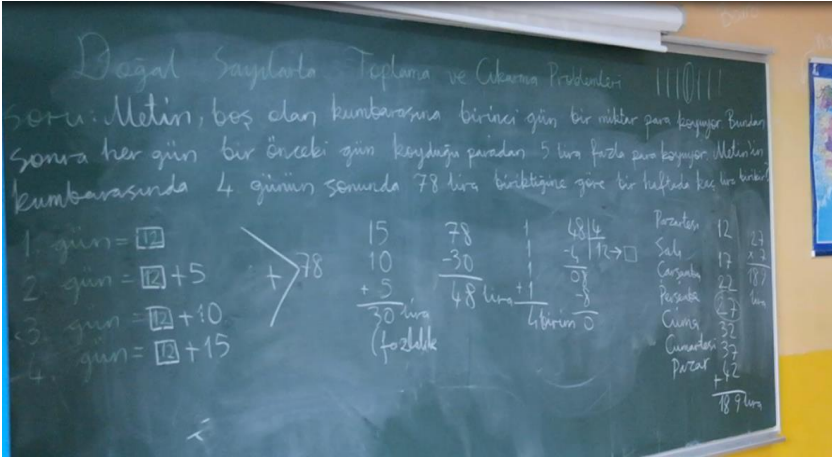 Doğal Sayılarla Toplama ve Çıkarma Problemleri
Soru: Metin, boş olan kumbarasına birinci gün bir miktar para koyuyor. Bundan
sonra her gün bir önceki gün koyduğu paradan 5 lira fazla para koyuyor. Metin'in
kumbarasında 4. günün sonunda 78 lira biriktiğine göre bir haftada kaç lira birikir?
1. gün = 12
2. gün = 12 + 5
3. gün = 12 + 10
4. gün = 12 + 15
+ 78
15
10
+ 5
30 lira
(fazlalık
78
-30
48 lira
1
1
1
+1
4 birim
48 4
-4 12 →
08
-8
0
Pazartesi 12
Salı 17
Çarşamba 22
Perşembe 27
Cuma 32
Cumartesi 37
Pazar + 42
189 lira
27
x 7
189
lira